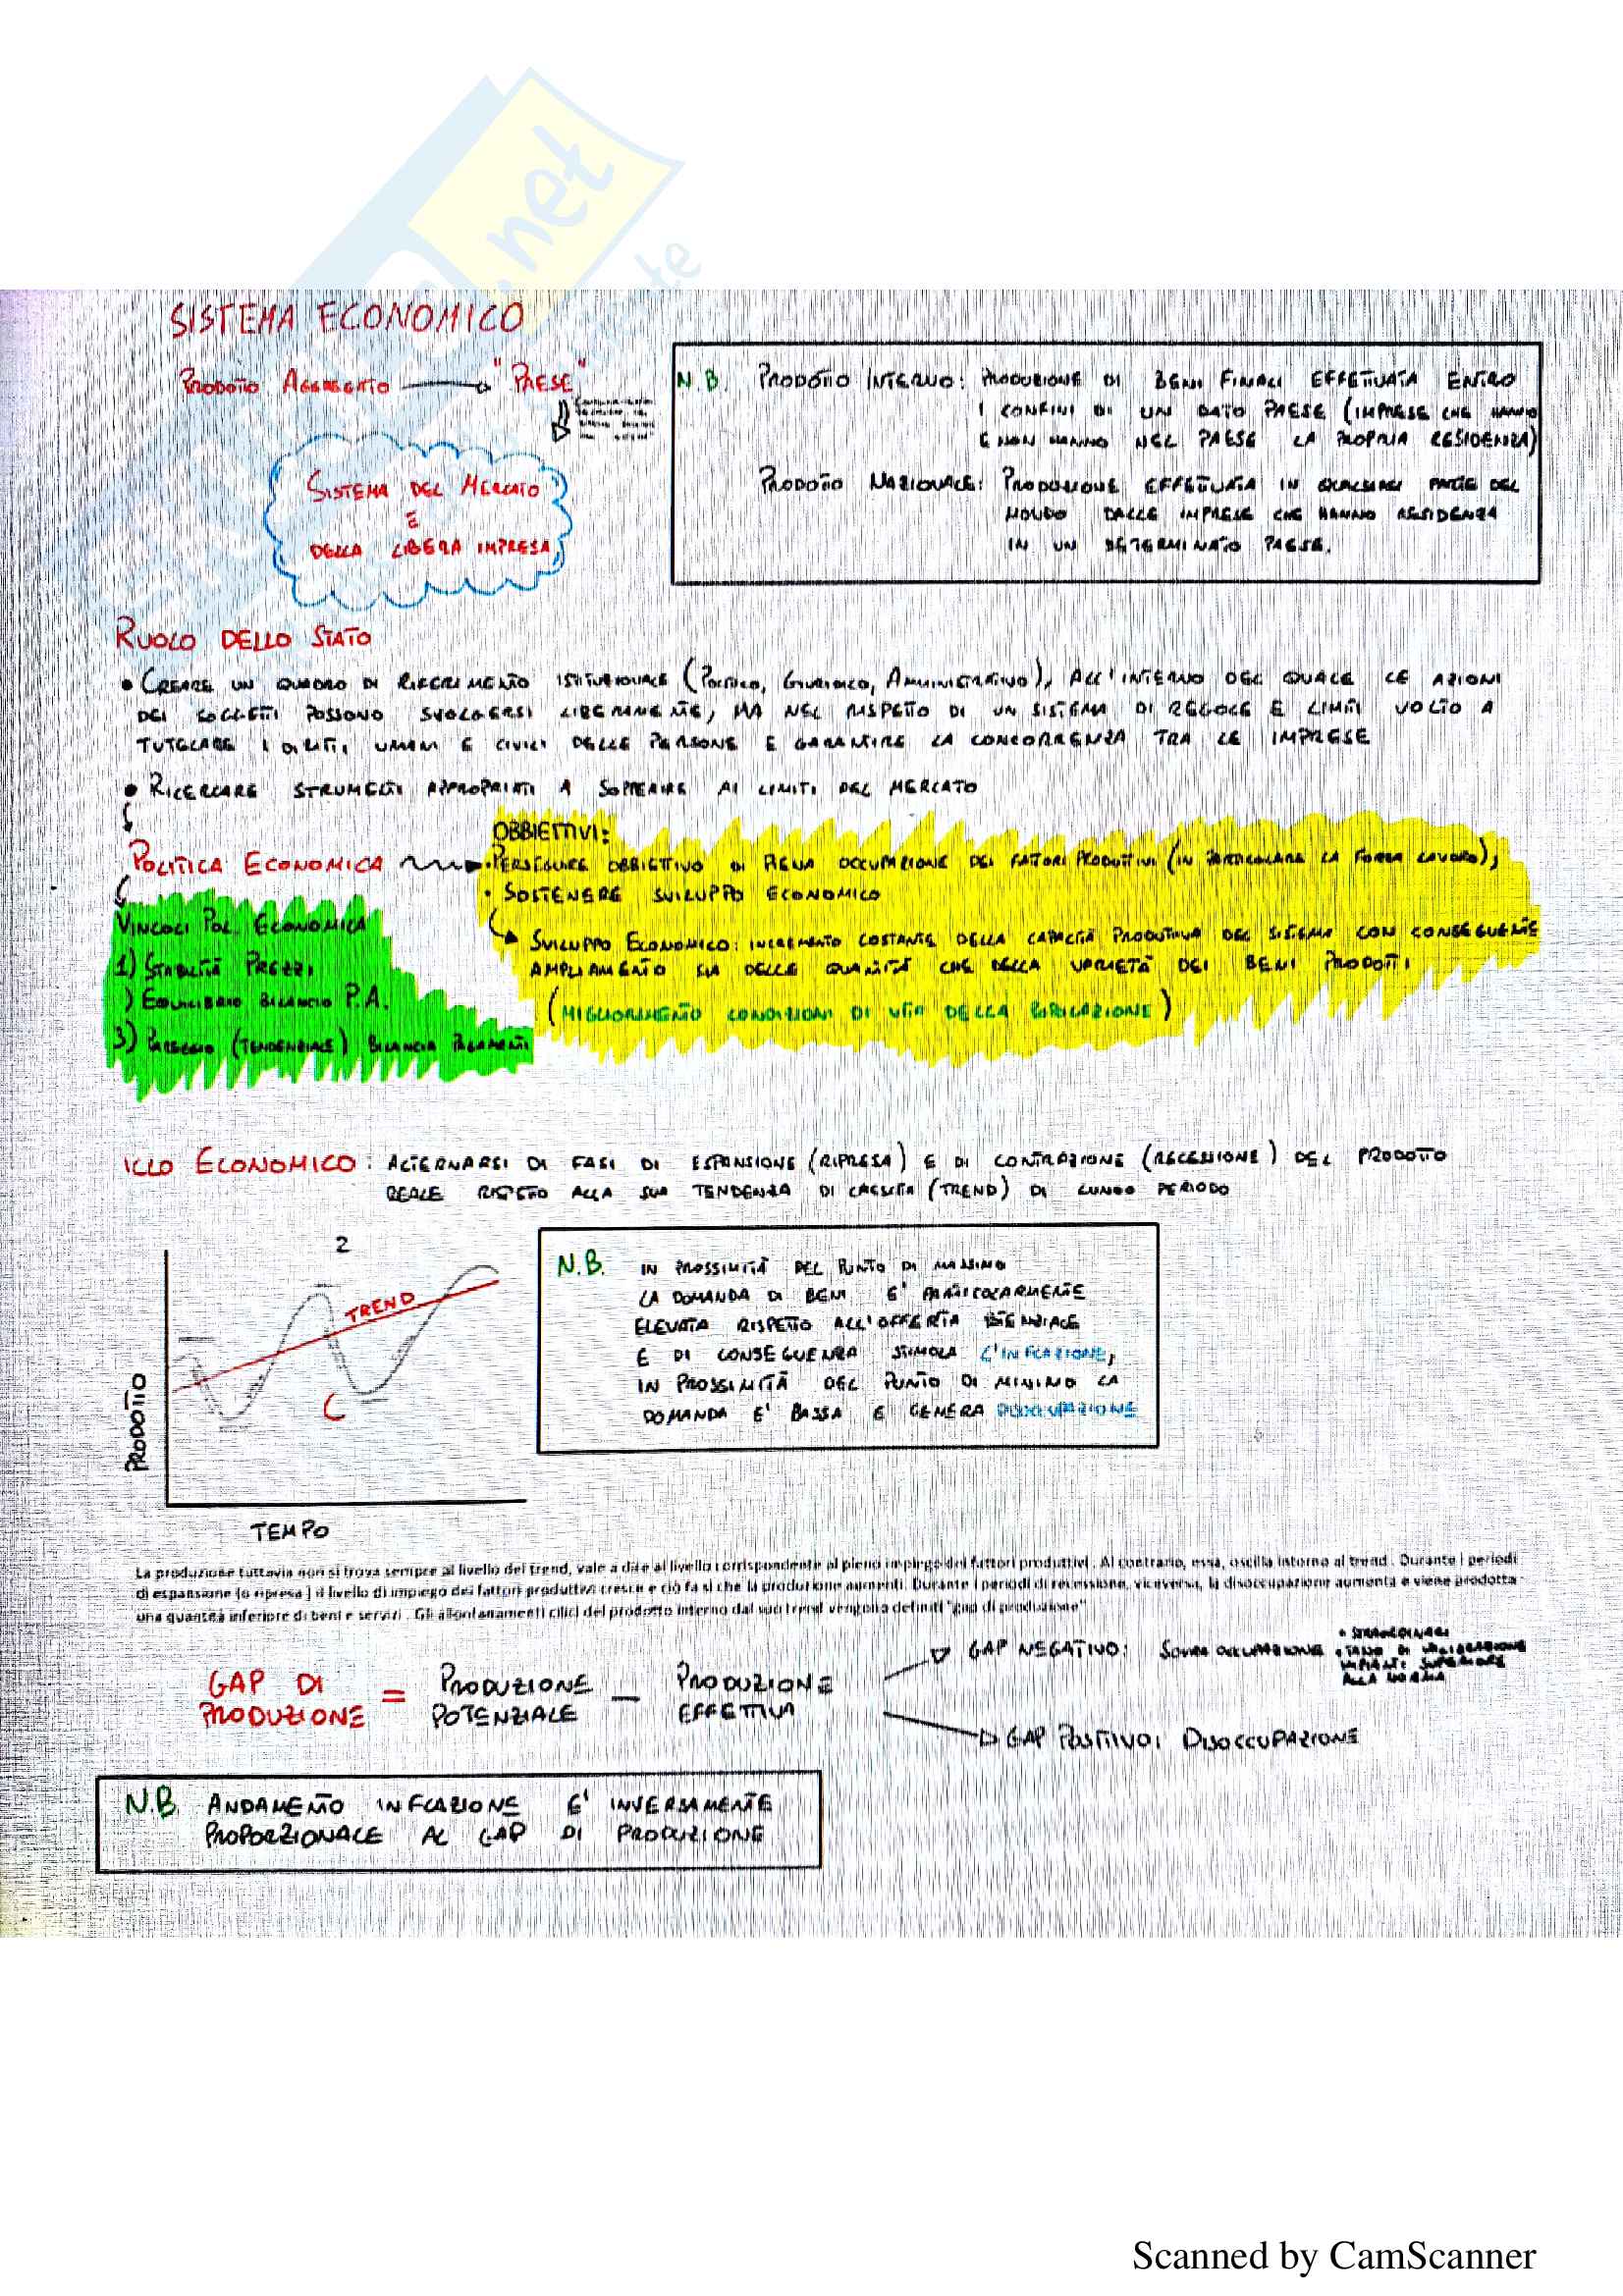 .net
SISTEMA ECONOMICO
PRODOTTO AGGREGATO "PAESE"
SISTEMA DEL MERCATO
E
DELLA LIBERA IMPRESA
N.B. PRODOTTO INTERNO: PRODUZIONE DI BENI FINALI EFFETTUATA ENTRO
I CONFINI DI UN DATO PAESE (IMPRESE CHE HANNO
E NON HANNO NEL PAESE LA PROPRIA RESIDENZA)
PRODOTTO NAZIONALE: PRODUZIONE EFFETTUATA IN QUALSIASI PARTE DEL
MONDO DALLE IMPRESE CHE HANNO RESIDENZA
IN UN DETERMINATO PAESE.
RUOLO DELLO STATO
• CREARE UN QUADRO DI RIFERIMENTO ISTITUZIONALE (POLITICO, GIURIDICO, AMMINISTRATIVO), ALL'INTERNO DEL QUALE LE AZIONI
DEI SOGGETTI POSSONO SVOLGERSI LIBERAMENTE, MA NEL RISPETTO DI UN SISTEMA DI REGOLE E LIMITI VOLTO A
TUTELARE I DIRITTI UMANI E CIVILI DELLE PERSONE E GARANTIRE LA CONCORRENZA TRA LE IMPRESE
• RICERCARE STRUMENTI APPROPRIATI A SOPPERIRE AI LIMITI DEL MERCATO
POLITICA ECONOMICA
OBBIETTIVI:
• PERSEGUIRE OBBIETTIVO DI PIENA OCCUPAZIONE DEI FATTORI PRODUTTIVI (IN PARTICOLARE LA FORZA LAVORO);
• SOSTENERE SVILUPPO ECONOMICO
SVILUPPO ECONOMICO: INCREMENTO COSTANTE DELLA CAPACITÀ PRODUTTIVA DEL SISTEMA CON CONSEGUENTE
AMPLIAMENTO SIA DELLE QUANTITÀ CHE DELLA VARIETÀ DEI BENI PRODOTTI
(MIGLIORAMENTO CONDIZIONI DI VITA DELLA POPOLAZIONE)
VINCOLI POL. ECONOMICA
1) STABILITÀ PREZZI
) EQUILIBRIO BILANCIO P.A.
3) PAREGGIO (TENDENZIALE) BILANCIA PAGAMENTI
ICLO ECONOMICO: ALTERNARSI DI FASI DI ESPANSIONE (RIPRESA) E DI CONTRAZIONE (RECESSIONE) DEL PRODOTTO
REALE RISPETTO ALLA SUA TENDENZA DI CRESCITA (TREND) DI LUNGO PERIODO
2
TREND
PRODOTTO
TEMPO
N.B. IN PROSSIMITÀ DEL PUNTO DI MASSIMO
LA DOMANDA DI BENI E' PARTICOLARMENTE
ELEVATA RISPETTO ALL'OFFERTA
E DI CONSEGUENZA STIMOLA L'INFLAZIONE,
IN PROSSIMITÀ DEL PUNTO DI MINIMO LA
DOMANDA E' BASSA E GENERA DISOCCUPAZIONE
La produzione tuttavia non si trova sempre al livello del trend, vale a dire al livello corrispondente al pieno impiego dei fattori produttivi. Al contrario, essa, oscilla intorno al trend. Durante i periodi
di espansione (o ripresa) il livello di impiego dei fattori produttivi cresce e ciò fa sì che la produzione aumenti. Durante i periodi di recessione, viceversa, la disoccupazione aumenta e viene prodotta
una quantità inferiore di beni e servizi. Gli allontanamenti ciclici del prodotto interno dal suo trend vengono definiti "gap di produzione"
GAP DI PRODUZIONE = PRODUZIONE POTENZIALE – PRODUZIONE EFFETTIVA
GAP NEGATIVO: SOVRA OCCUPAZIONE
• STRAORDINARI
• TASSO DI UTILIZZAZIONE
IMPIANTI SUPERIORE
ALLA NORMA
GAP POSITIVO: DISOCCUPAZIONE
N.B. ANDAMENTO INFLAZIONE E' INVERSAMENTE
PROPORZIONALE AL GAP DI PRODUZIONE
Scanned by CamScanner